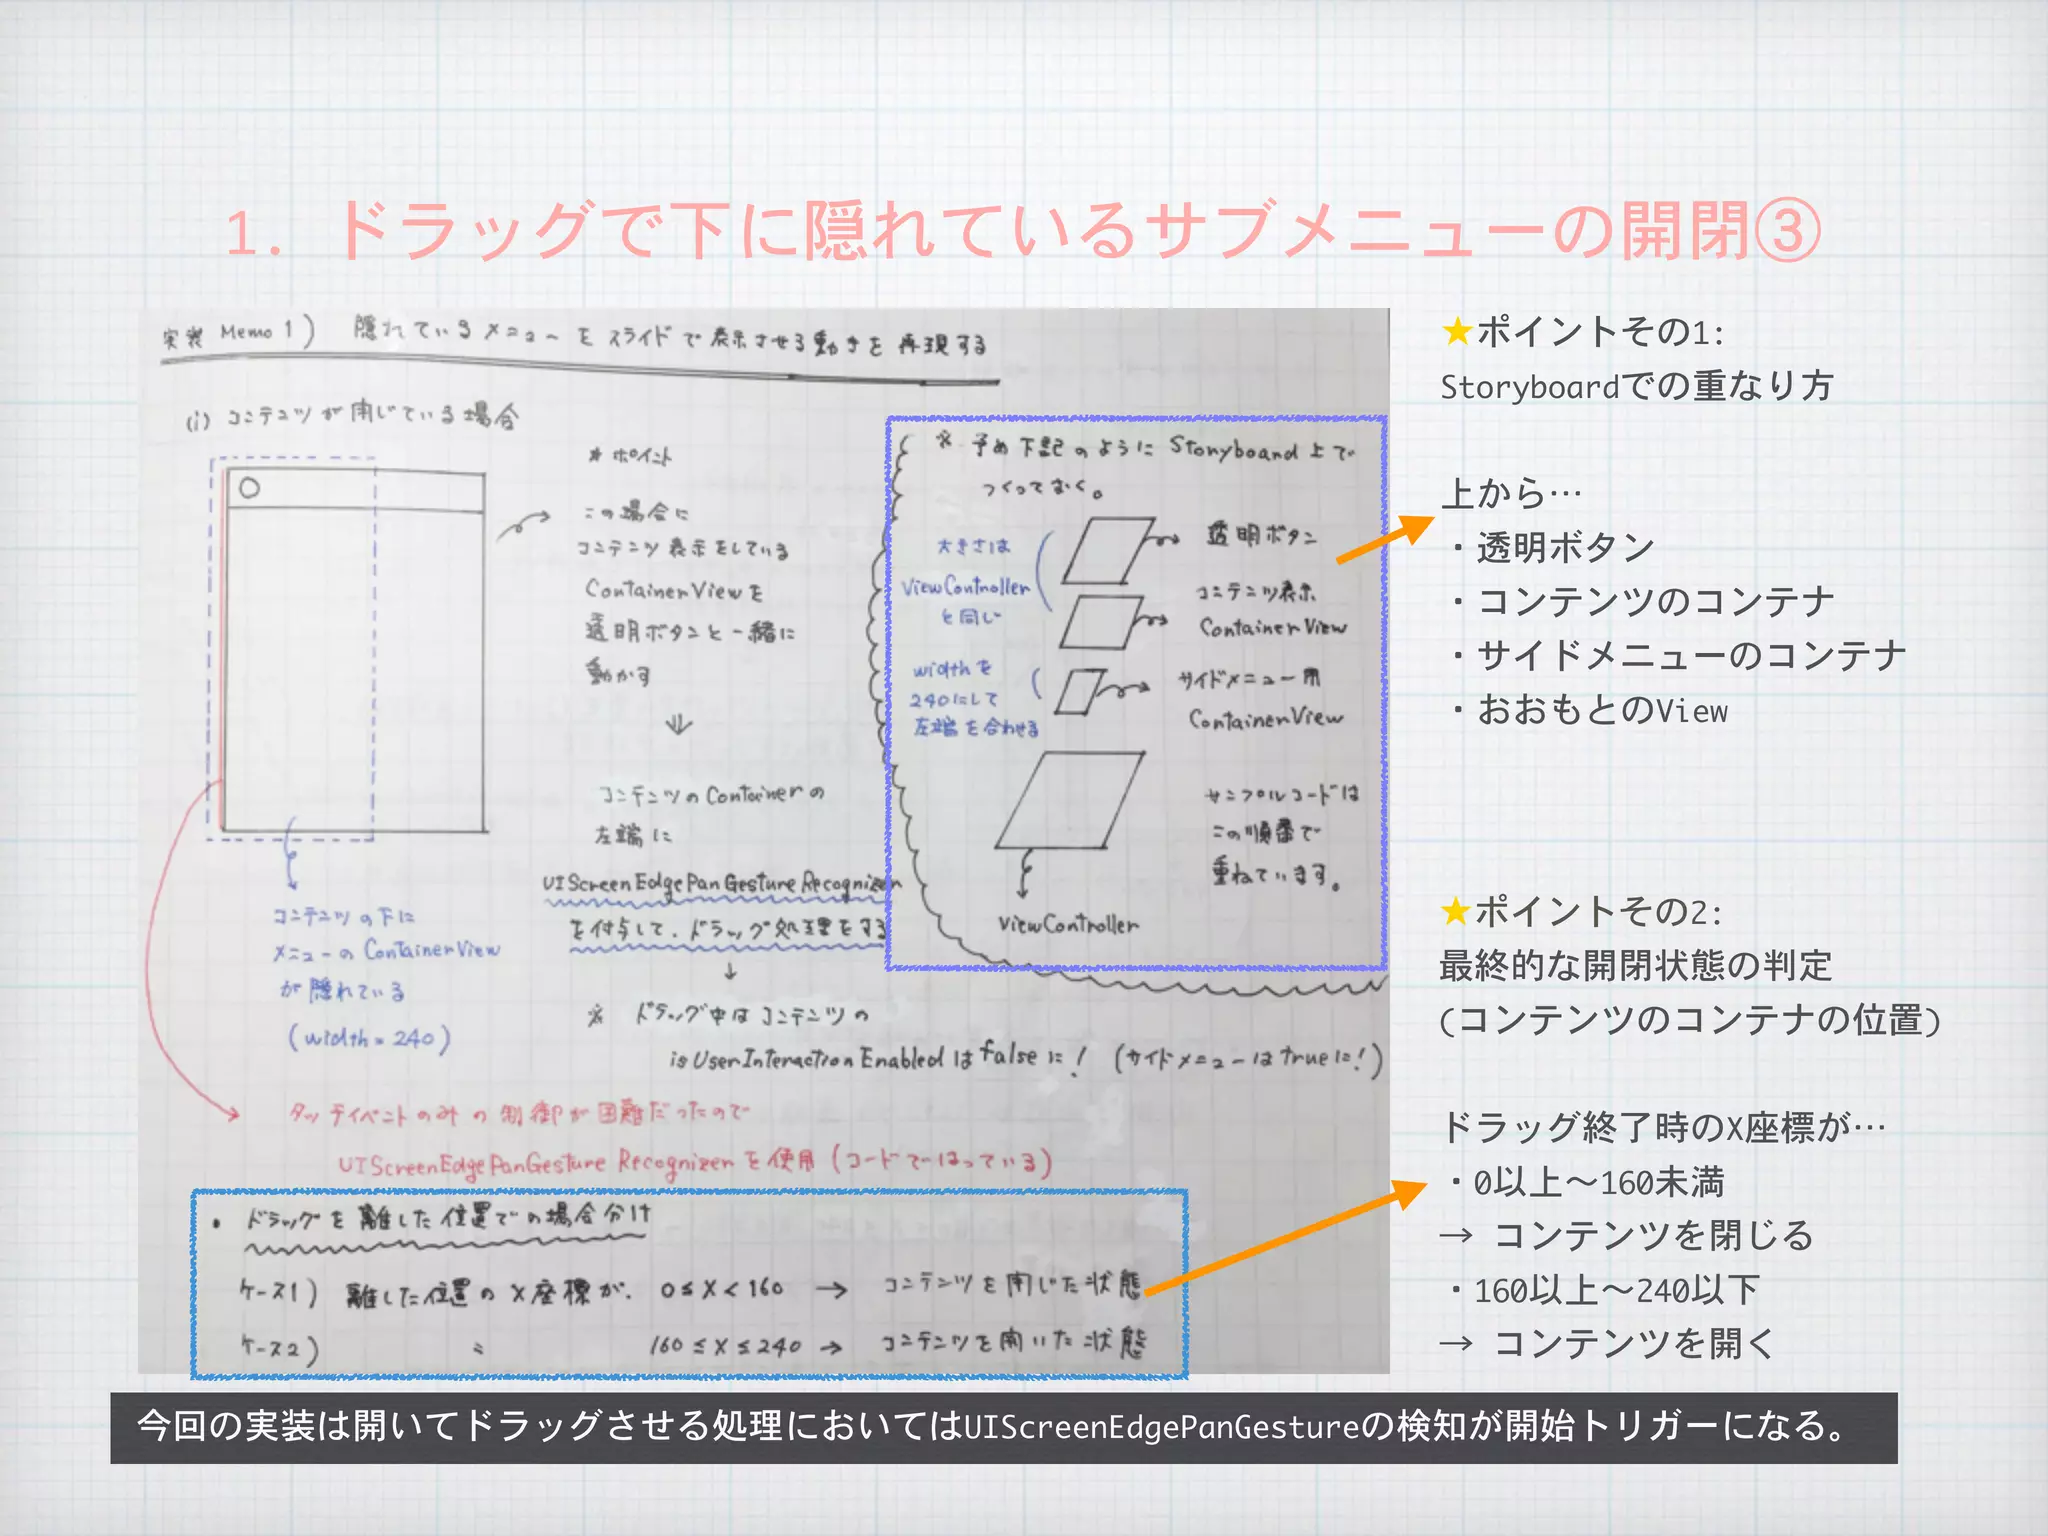 1. ドラッグで下に隠れているサブメニューの開閉③
実装 Memo 1) 隠れているメニューをスライドで表示させる動きを再現する
(i) コンテンツが閉じている場合
* ポイント
この場合に
コンテンツ表示をしている
ContainerViewを
透明ボタンと一緒に
動かす
コンテンツのContainerの
左端に
UIScreenEdgePanGestureRecognizer
を付与して、ドラッグ処理をする
※ ドラッグ中はコンテンツの
isUserInteractionEnabledはfalseに! (サイドメニューはtrueに!)
コンテンツの下に
メニューのContainerView
が隠れている
(width = 240)
タッチイベントのみの制御が困難だったので
UIScreenEdgePanGestureRecognizerを使用(コードではっている)
※ 予め下記のようにStoryboard上で
つくっておく。
大きさは
ViewController
と同じ
透明ボタン
コンテンツ表示
ContainerView
widthを
240にして
左端を合わせる
サイドメニュー用
ContainerView
サンプルコードは
この順番で
重ねています。
ViewController
・ドラッグを離した位置での場合分け
ケース1) 離した位置のX座標が、 0≦X<160 → コンテンツを閉じた状態
ケース2) 〃 160≦X≦240 → コンテンツを開いた状態
★ポイントその1:
Storyboardでの重なり方
上から…
・透明ボタン
・コンテンツのコンテナ
・サイドメニューのコンテナ
・おおもとのView
★ポイントその2:
最終的な開閉状態の判定
(コンテンツのコンテナの位置)
ドラッグ終了時のX座標が…
・0以上〜160未満
→ コンテンツを閉じる
・160以上〜240以下
→ コンテンツを開く
今回の実装は開いてドラッグさせる処理においてはUIScreenEdgePanGestureの検知が開始トリガーになる。